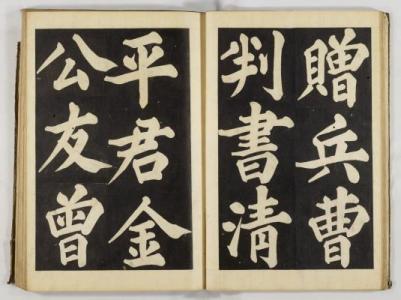 贈兵曹
判書清
平君金
公友曾